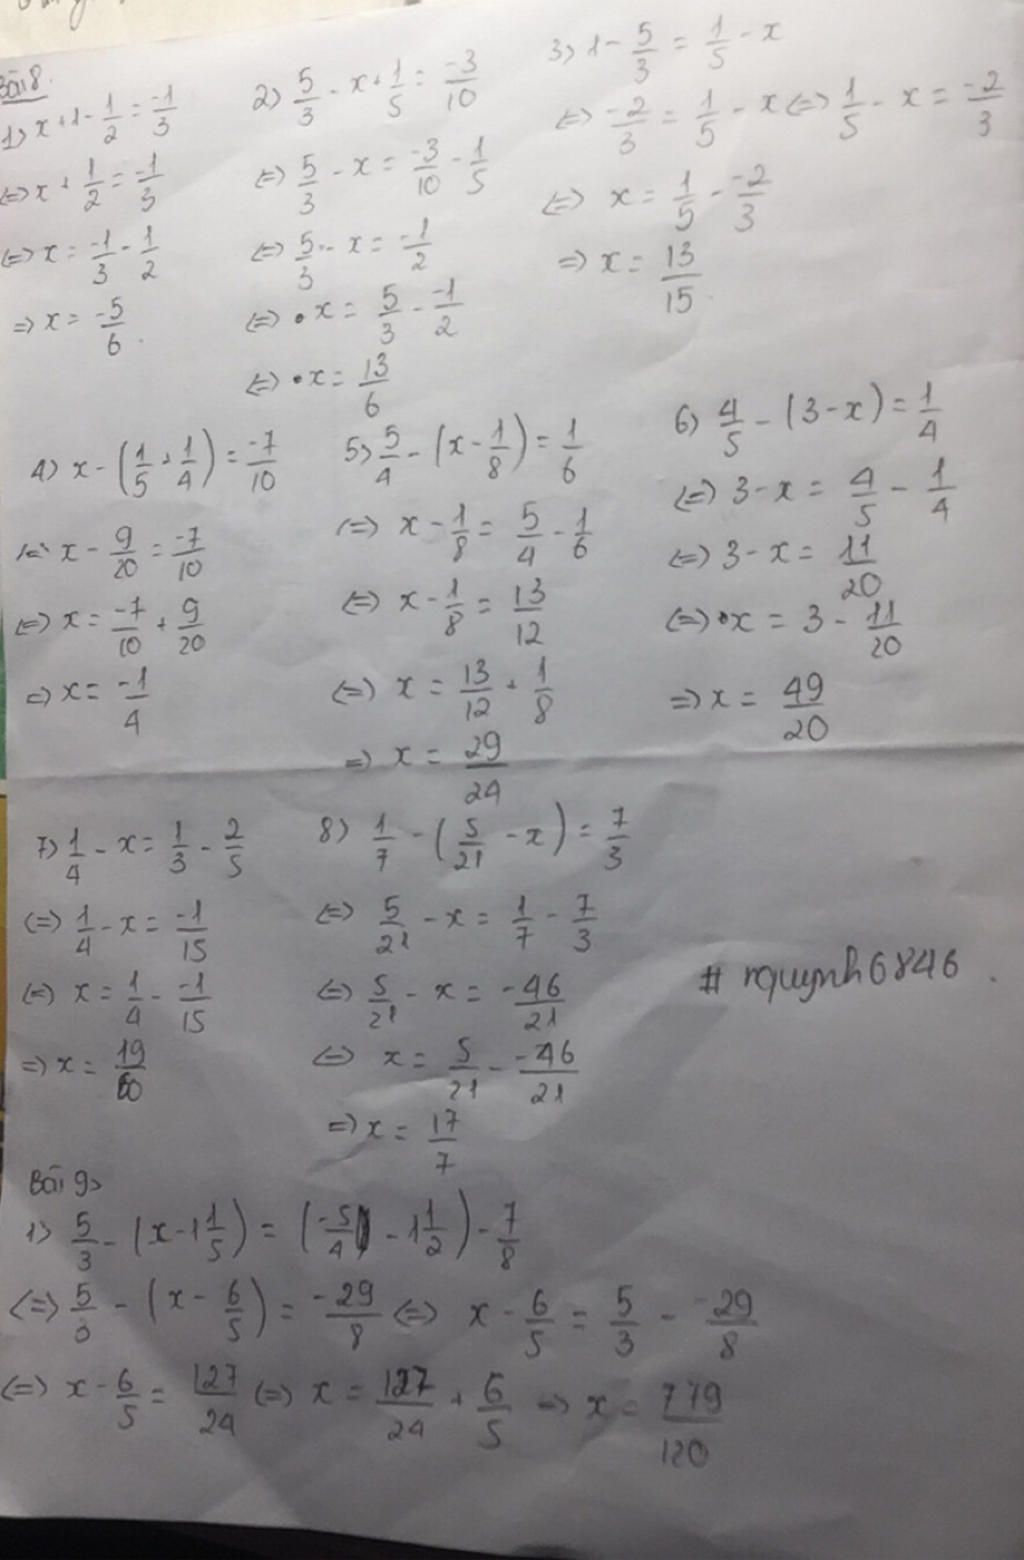 Bài 8.
1) x + 1 - 1/2 = -1/3
<=> x + 1/2 = -1/3
<=> x = -1/3 - 1/2
=> x = -5/6.
2) 5/3 - x + 1/5 = -3/10
<=> 5/3 - x = -3/10 - 1/5
<=> 5/3 - x = -1/2
<=> x = 5/3 - -1/2
<=> x = 13/6
3) 1 - 5/3 = 1/5 - x
<=> -2/3 = 1/5 - x <=> 1/5 - x = -2/3
<=> x = 1/5 - -2/3
=> x = 13/15.
4) x - (1/5 + 1/4) = -7/10
<=> x - 9/20 = -7/10
<=> x = -7/10 + 9/20
=> x = -1/4
5) 5/4 - (x - 1/8) = 1/6
<=> x - 1/8 = 5/4 - 1/6
<=> x - 1/8 = 13/12
<=> x = 13/12 + 1/8
=> x = 29/24
6) 4/5 - (3 - x) = 1/4
<=> 3 - x = 4/5 - 1/4
<=> 3 - x = 11/20
<=> x = 3 - 11/20
=> x = 49/20
7) 1/4 - x = 1/3 - 2/5
<=> 1/4 - x = -1/15
<=> x = 1/4 - -1/15
=> x = 19/60
8) 1/7 - (5/21 - x) = 7/3
<=> 5/21 - x = 1/7 - 7/3
<=> 5/21 - x = -46/21
<=> x = 5/21 - -46/21
=> x = 17/7
# nquynh6846.
Bài 9>
1> 5/3 - (x - 1 1/5) = (-5/4 - 1 1/2) - 7/8
<=> 5/3 - (x - 6/5) = -29/8 <=> x - 6/5 = 5/3 - -29/8
<=> x - 6/5 = 127/24 <=> x = 127/24 + 6/5 => x = 779/120